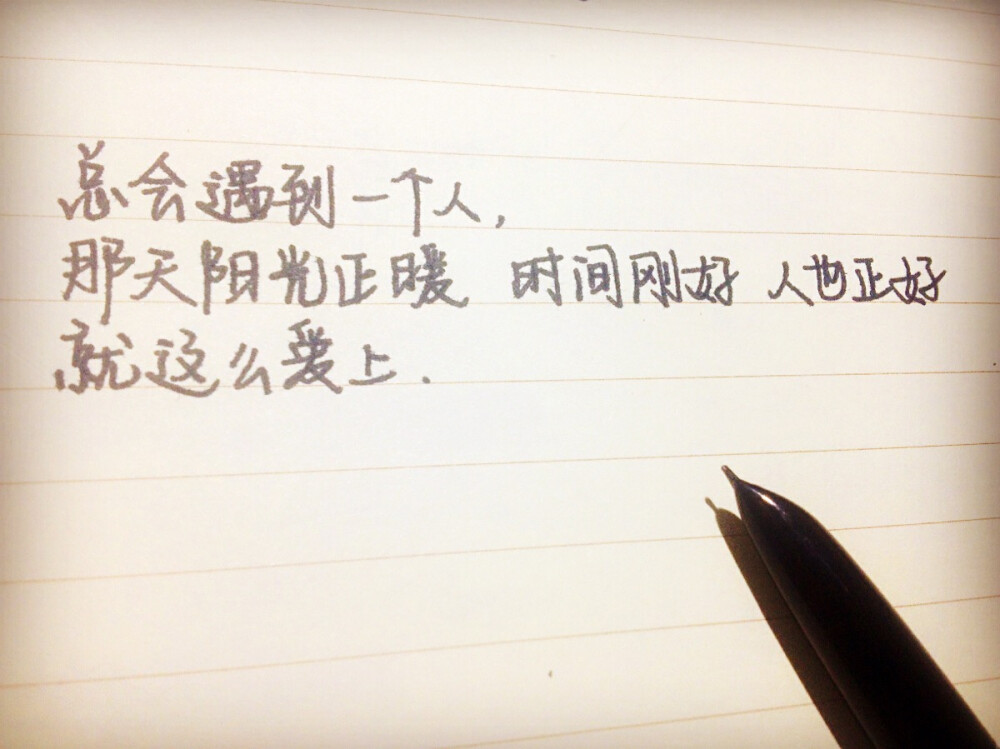 总会遇到一个人，
那天阳光正暖 时间刚好 人也正好
就这么爱上.